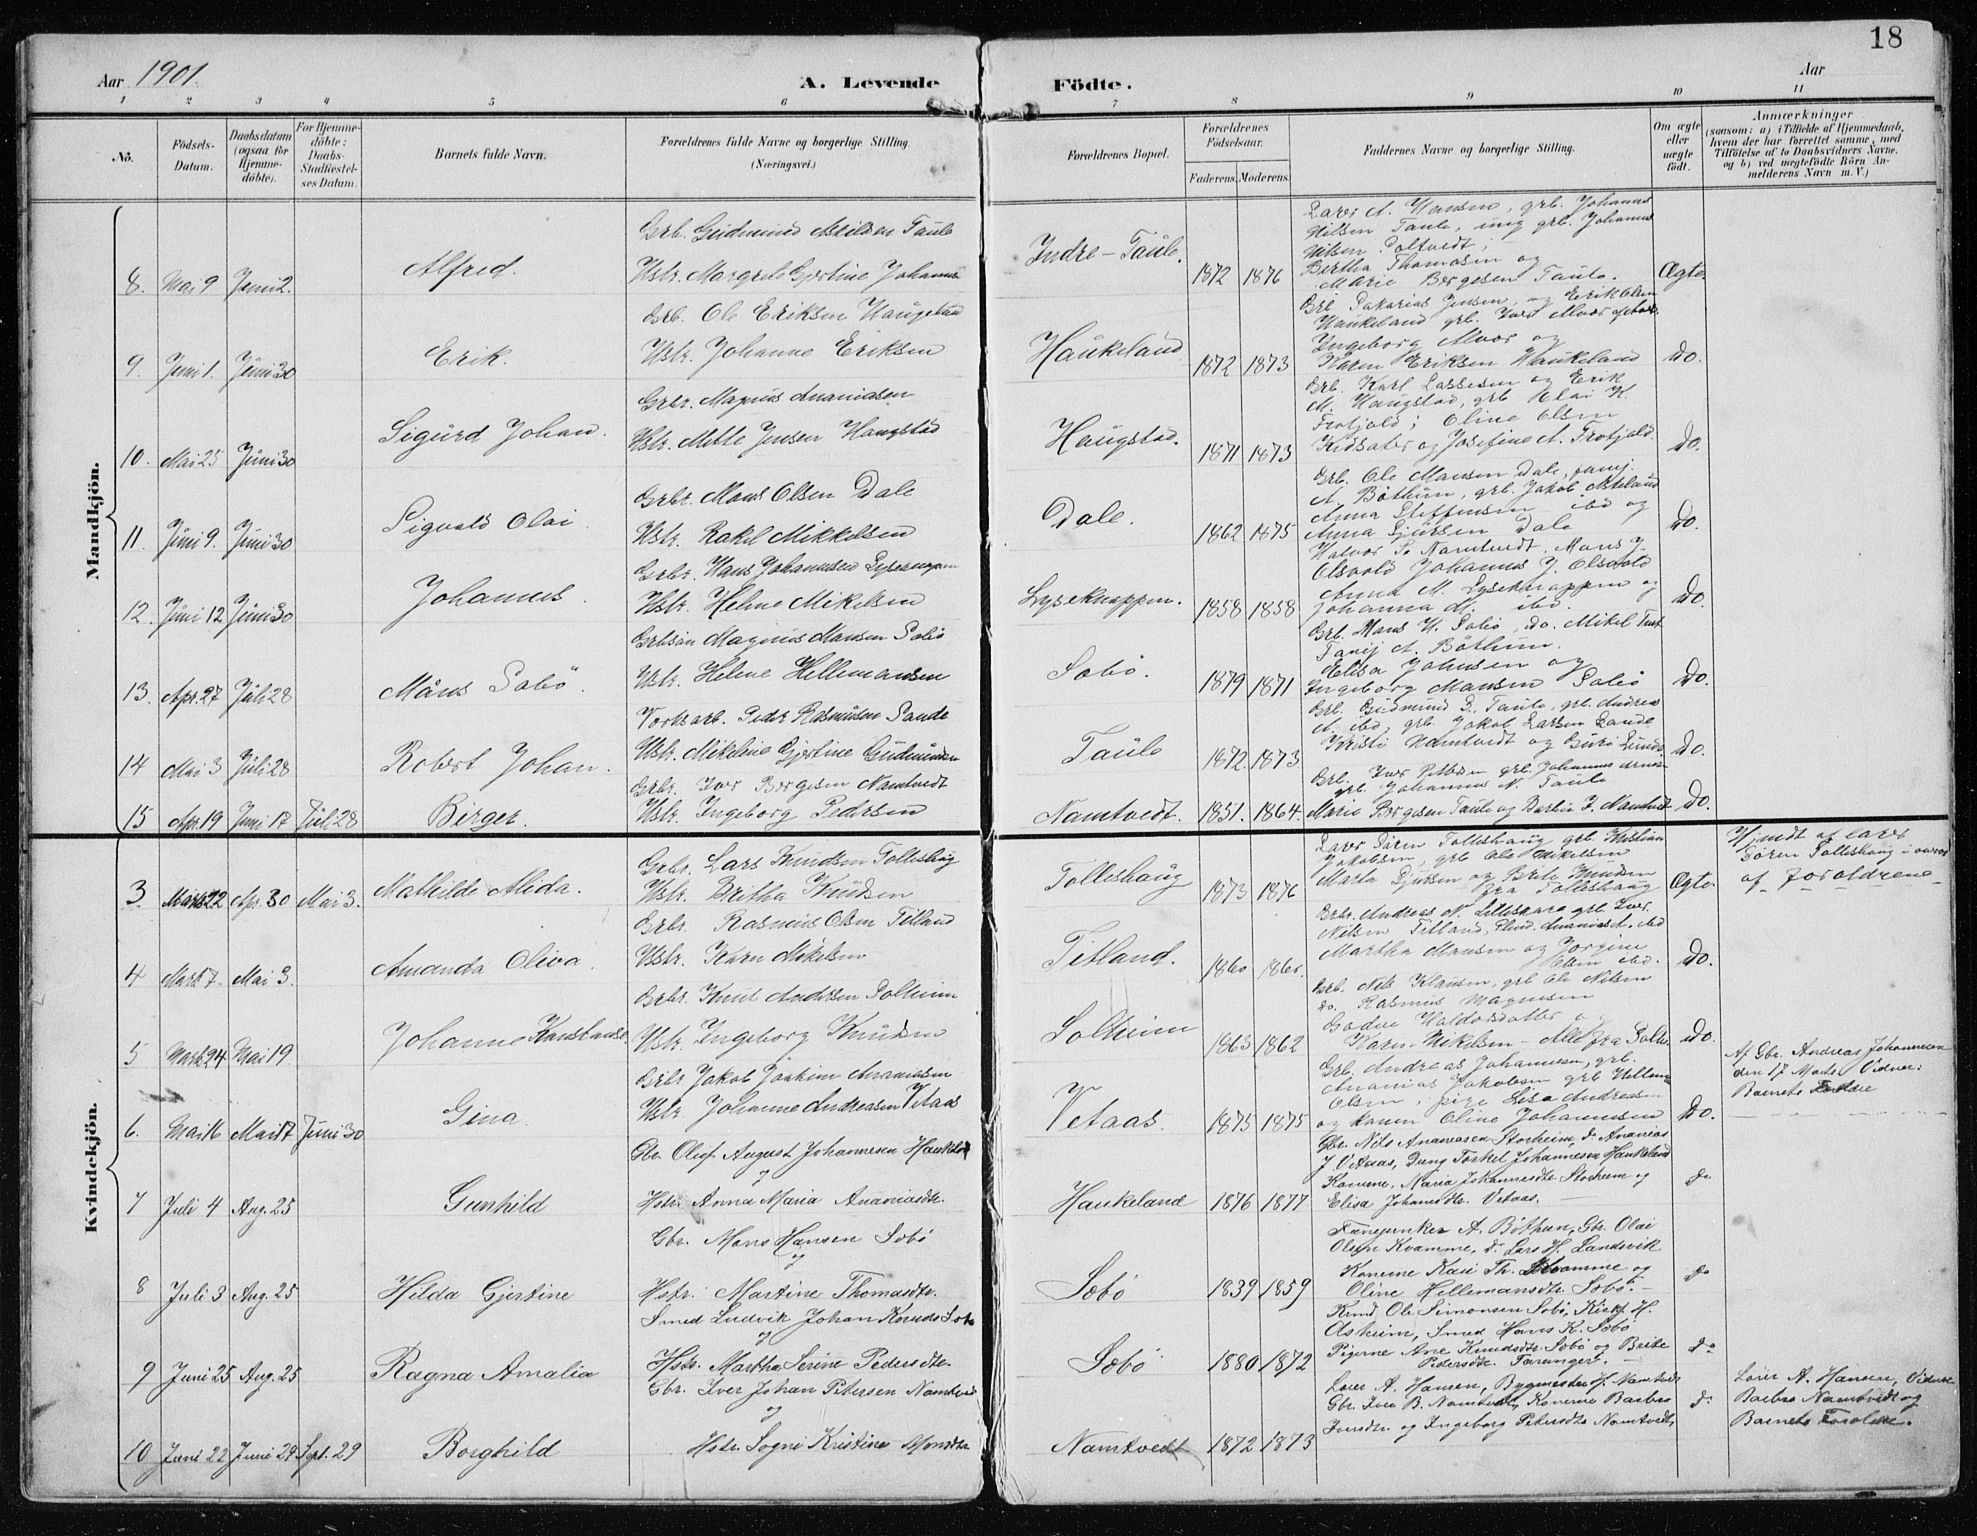 18
Aar 1901.
A. Levende Födte.
Aar
1 2 3 4 5 6 7 8 9 10 11
No.
Födsels-Datum.
Daabsdatum (ogsaa for Hjemme-döbte).
For Hjemme-döbte: Daabs-Stadfæstel-ses Datum.
Barnets fulde Navn.
Forældrenes fulde Navne og borgerlige Stilling. (Næringsvei.)
Forældrenes Bopæl.
Forældrenes Födselsaar.
Faderens. Moderens.
Faddernes Navne og borgerlige Stilling.
Om ægte eller uægte födt.
Anmærkninger
(saasom: a) i Tilfælde af Hjemmedaab, hvem der har forrettet samme, med Tilföielse af to Daabsvidners Navne. og b) ved uægtefödte Börn An-melderens Navn m. V.)
Mandkjön.
8. Mai 9 Juni 2. Alfred.
Grb. Gudmund Nilsen Taule
Hstr. Margrete Gjertine Johanns
Indre-Taule. 1872 1876
Lærer A. Hansen, grb. Johannes
Nilsen Taule, ung grb. Johannes
Nilsen
Bertha Thomasen og
Marie Børgesen Taule. Ægte
9. Juni 1. Juni 30 Erik.
Grb. Ole Eriksen Haugeland
Hstr. Johanne Eriksen
Haukeland 1872 1873
Grb Sakarias Jensen, og Erik Olsen
Haukeland grb. Iver
Ingeborg Alvær og
Karen Eriksen Haukeland Do.
10. Mai 25 Juni 30 Sigurd Johan.
Grbr. Magnus Ananiasen
Hstr. Mette Jensen Haugstad
Haugstad. 1871 1873
Grb. Karl Lassesen og Erik
M. Haugstad, grb Olai H.
Oline Olsen
og Josefine A. Do.
11. Juni 9. Juni 30 Sigvald Olai
Grbr. Mons Olsen Dale
Hstr. Rakel Mikkelsen
Dale. 1862 1875
Grb. Ole Mansen Dale, fanej.
A. Bøthun, grb. Jakob Askeland
Anna Steffensen ibd og
Anna Sjursen Dale Do.
12. Juni 12 Juni 30 Johannes
Grbr. Hans Johannesen Lyseknappen
Hstr. Helene Mikelsen
Lyseknappen. 1858 1858
Halvor P. Namtvedt. Mons J.
Olsvold Johannes J. Olsvold
Anna M. Lyseknappen og
Johanna M. ibd. Do.
13. Apr. 27 Juli 28 Måns Søbø.
Grbsøn Magnus Mansen Søbø
Hstr. Helene Hellemansen
Søbø. 1879 1871
Grb. Mans H. Søbø, do. Mikel
Fanej A. Bøthun.
Elisa Johnsen og
Ingeborg Mansen Søbø Do.
14 Mai 3 Juli 28 Robert Johan.
Vorksarb. Peder Rasmusen Sande
Hstr. Mikeline Gjertine Gudmundsen
Taule 1872. 1873.
Grb. Gudmund L. Taule, grb. Andreas
A. ibd, grb. Jakob Larsen Sande
Kristi Namtvedt og Guri Do.
15 Apr. 19 Juni 17 Juli 28 Birger.
Grbr. Iver Børgesen Namtvedt
Hstr. Ingeborg Pedersen
Namtvedt. 1851. 1864.
Grb. Iver Petersen grb. Johannes
grb Johannes N. Taule
Marie Børgesen Taule og Barbru I. Namtvedt Do.
Kvindekjön.
3. Marts 22 Apr. 30 Mai 3. Mathilde Alida.
Grbr. Lars Knudsen Tolleshaug
Hstr. Britha Knudsen
Tolleshaug 1873 1876
Lærer Søren Tolleshaug grb. Kristian
Jakobsen, grb Ole Mikelsen
Marta Sjursen og Brite Knudsen
fra Tolleshaug Ægte
Hjmdt af lærer
Søren Tolleshaug i overvær
af forældrene
4 Mart 7. Mai 3. Amanda Oliva.
Grbr. Rasmus Olsen Titland
Hstr. Karn Mikelsen
Titland. 1860 1860.
Grbr. Andreas N. Lilleskare grb. Iver
Nilsen Titland, Ananias A. ibd
Martha Mansen og Jorgine
Olsen ibd. Do.
5 Mart 24 Mai 19 Johanne Konstanse
Grbr. Knut Andersen Solheim
Hstr. Ingeborg Knudsen
Solheim 1863 1862
Grb. Nils Klausen, grb Ole Nilsen
do. Rasmus Magnusen
Gadve Haldorsdatter og
Karn Mikelsen - Alle fra Solhe. Do.
6. Mart 16 Marts 17 Juni 30 Gina.
Grbr Jakob Joakim Ananiassen
Hstr. Johanne Andreasen Vetaas
Vetaas. 1875 1875
Grb. Andreas Johannesen, grb.
Ananias Jakobsen grb Hellem
Olsen; pige Lisa Andreasen
og konen Oline Johannesen Do.
Af Gbr. Andreas Johannesen
den 17 Marts. Vidner:
Barnets Forældre
7 Juli 4 Aug. 25 Gunhild
Gbr. Oluf August Johannesen Haukeland
og
Hstr. Anna Maria Ananiasdtr.
Haukeland 1876 1877
Gbr. Nils Ananiasen Storheim, do Ananias
J Vetaas, Ung Torkel Johannesen Haukeland
Konerne, Maria Johannesdtr Storheim og
Elisa Johansdtr. Vetaas. do
8 Juli 3 Aug. 25 Hilda Gjertine
Gbr. Mons Hansen Søbø
og
Hstr. Martine Thomasdtr.
Søbø 1839 1859
Fanejunker A. Bøthun, Gbr. Olai
Olsen Kvamme, do Lars H. Landsvik
Konerne Kari Th. Kvamme og
Oline Hillemansdtr. Søbø. do
9 Juni 25 Aug. 25 Ragna Amalia
Smed Ludvik Johan Knuds Søbø
og
Hstr. Martha Serine Pedersdtr.
Søbø 1880 1872
Knud Ole Simonsen Søbø, Krist. H.
Asheim, Smed Hans K. Søbø
Pigerne Ane Knudsdtr. Søbø og Brite
Petersdtr. do
10 Juni 22 Juni 29 Sept. 29 Borghild
Gbr. Iver Johan Petersen Namtvedt
og
Hstr. Sogni Kristine Monsdtr
Namtvedt 1872 1873
Lærer A. Hansen, Bygmester H. Namtvedt
Gbr. Iver B. Namtvedt, Konerne Barbro
Iversdtr og Ingeborg Petersdtr Namtvedt, do
Lærer A. Hansen, Vidner
Barbro Namtvedt og
Barnets Forældre.